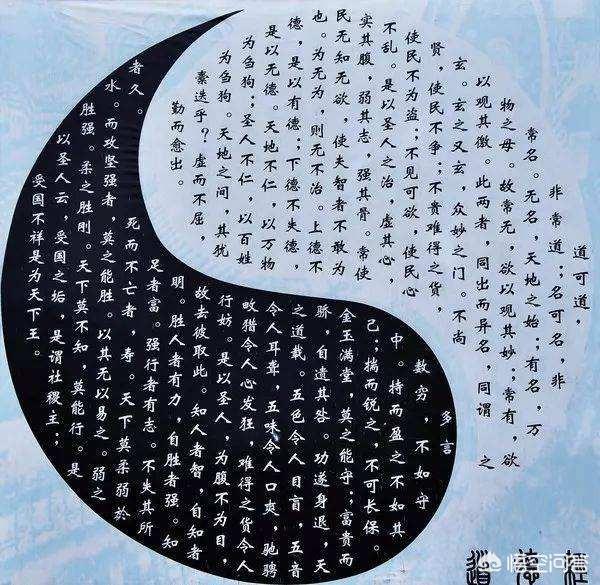 道可道，
非常道；名可名，非
常名。无名，天地之始；有名，万
物之母。故常无，欲以观其妙；常有，欲
以观其徼。此两者，同出而异名，同谓 之
玄。玄之又玄，众妙之门。不尚
贤，使民不争；不贵难得之货，
使民不为盗；不见可欲，使民心
不乱。是以圣人之治，虚其心，
实其腹，弱其志，强其骨。常使
民无知无欲，使夫智者不敢为
也。为无为，则无不治。上德不
德，是以有德；下德不失德，
是以无德。天地不仁，以万物
为刍狗；圣人不仁，以百姓
为刍狗。天地之间，其犹
橐迭乎？虚而不屈，
勤而愈出。
多言
数穷，不如守
中。持而盈之不如其
己；揣而锐之，不可长保。
金玉满堂，莫之能守；富贵而
骄，自遗其咎。功遂身退，天
之道哉。五色令人目盲，五音
令人耳聋，五味令人口爽，驰骋
畋猎令人心发狂，难得之货令人
行妨。是以圣人，为腹不为目，
故去彼取此。知人者智，自知者
明。胜人者有力，自胜者强。知
足者富。强行者有志。不失其所
者久。 死而不亡者，寿。天下莫柔弱於
水。而攻坚强者，莫之能胜。以其无以易之。弱之
胜强。柔之胜刚。天下莫不知 莫能行。是
以圣人云，受国之垢，是谓社稷主；
受国不祥是为天下王。
道德经
悟空问答